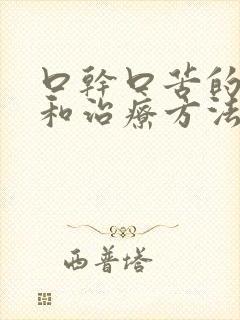 口幹口苦的
和治療方法
西普塔